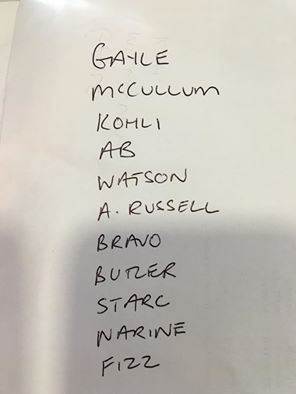 GAYLE
McCULLUM
KOHLI
AB
WATSON
A. RUSSELL
BRAVO
BUTLER
STARC
NARINE
FIZZ